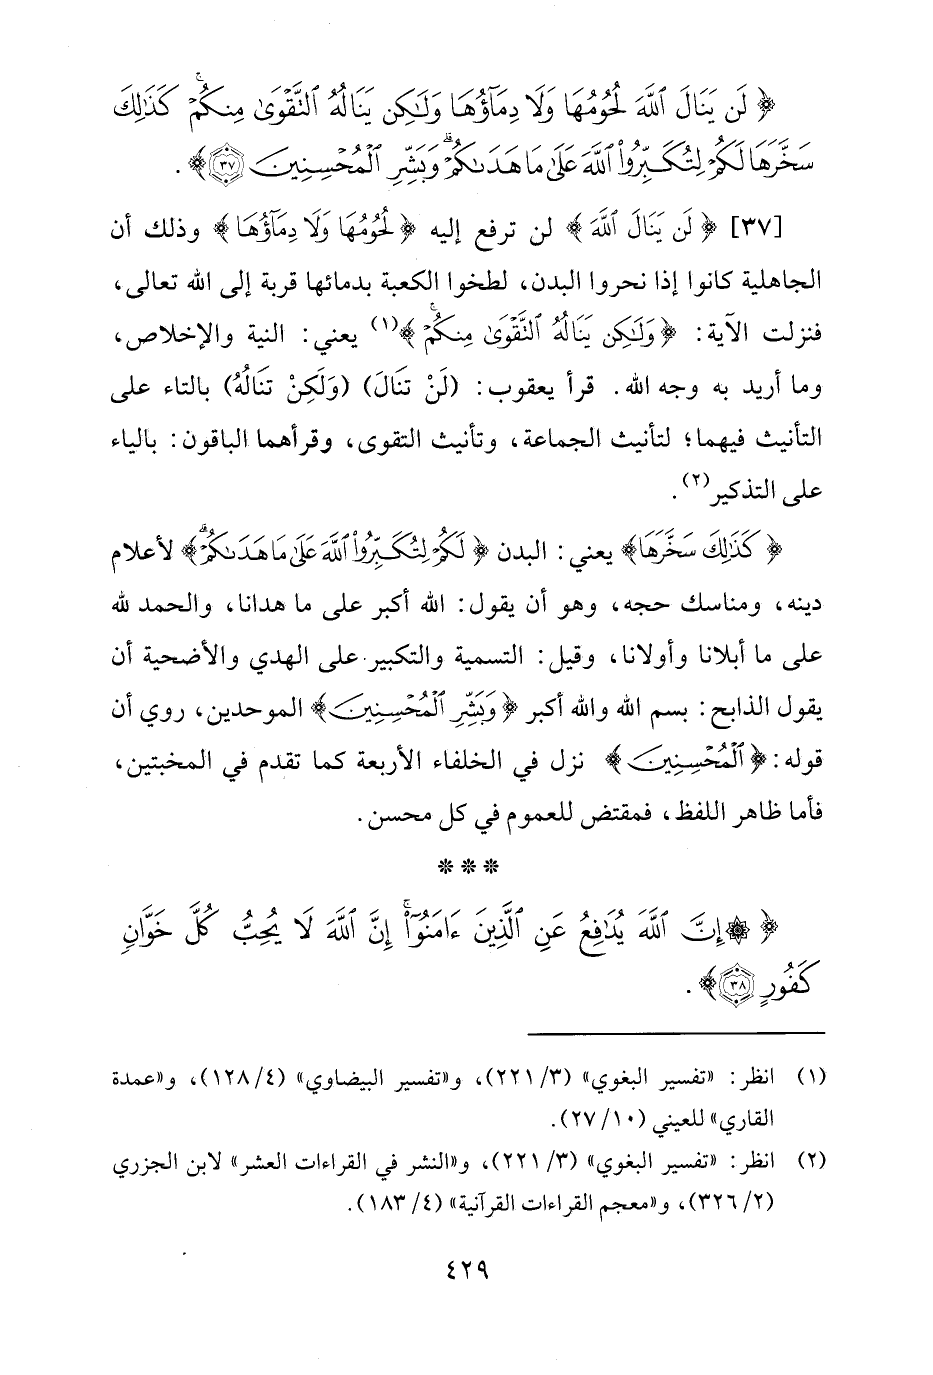 ﴿لَن يَنَالَ ٱللَّهَ لُحُومُهَا وَلَا دِمَآؤُهَا وَلَـٰكِن يَنَالُهُ ٱلتَّقْوَىٰ مِنكُمْۚ كَذَٰلِكَ
سَخَّرَهَا لَكُمْ لِتُكَبِّرُوا۟ ٱللَّهَ عَلَىٰ مَا هَدَىٰكُمْۗ وَبَشِّرِ ٱلْمُحْسِنِينَ ٣٧﴾.
[٣٧] ﴿لَن يَنَالَ ٱللَّهَ﴾ لن ترفع إليه ﴿لُحُومُهَا وَلَا دِمَآؤُهَا﴾ وذلك أن
الجاهلية كانوا إذا نحروا البدن، لطخوا الكعبة بدمائها قربة إلى الله تعالى،
فنزلت الآية: ﴿وَلَـٰكِن يَنَالُهُ ٱلتَّقْوَىٰ مِنكُمْۚ﴾(١) يعني: النية والإخلاص،
وما أريد به وجه الله. قرأ يعقوب: (لَنْ تَنَالَ) (وَلَكِنْ تَنَالُهُ) بالتاء على
التأنيث فيهما؛ لتأنيث الجماعة، وتأنيث التقوى، وقرأهما الباقون: بالياء
على التذكير(٢).
﴿كَذَٰلِكَ سَخَّرَهَا﴾ يعني: البدن ﴿لَكُمْ لِتُكَبِّرُوا۟ ٱللَّهَ عَلَىٰ مَا هَدَىٰكُمْۗ﴾ لأعلام
دينه، ومناسك حجه، وهو أن يقول: الله أكبر على ما هدانا، والحمد لله
على ما أبلانا وأولانا، وقيل: التسمية والتكبير على الهدي والأضحية أن
يقول الذابح: بسم الله والله أكبر ﴿وَبَشِّرِ ٱلْمُحْسِنِينَ﴾ الموحدين، روي أن
قوله: ﴿ٱلْمُحْسِنِينَ﴾ نزل في الخلفاء الأربعة كما تقدم في المخبتين،
فأما ظاهر اللفظ، فمقتض للعموم في كل محسن.
* * *
﴿۞ إِنَّ ٱللَّهَ يُدَٰفِعُ عَنِ ٱلَّذِينَ ءَامَنُوٓا۟ۗ إِنَّ ٱللَّهَ لَا يُحِبُّ كُلَّ خَوَّانٍ
كَفُورٍ ٣٨﴾.
(١) انظر: «تفسير البغوي» (٣/ ٢٢١)، و«تفسير البيضاوي» (٤/ ١٢٨)، و«عمدة
القاري» للعيني (١٠/ ٢٧).
(٢) انظر: «تفسير البغوي» (٣/ ٢٢١)، و«النشر في القراءات العشر» لابن الجزري
(٢/ ٣٢٦)، و«معجم القراءات القرآنية» (٤/ ١٨٣).
٤٢٩